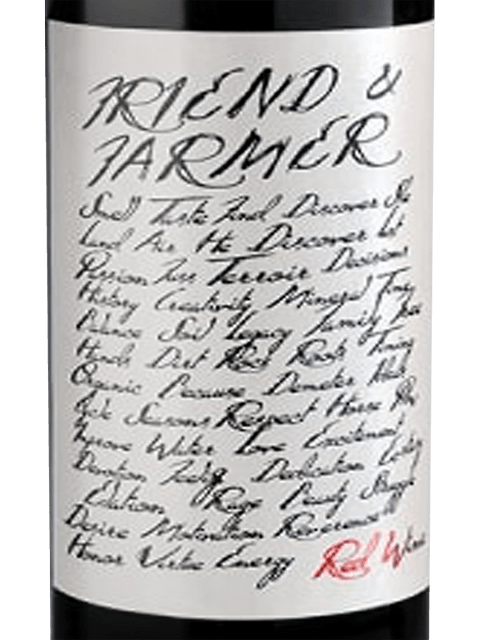 FRIEND &
FARMER
Smell Taste And Discover
Land Air He Discover
Passion Terroir Decisions
History Creativity Mineral Time
Balance Soil Legacy Family
Hands Dirt Rock Roots Timing
Organic Because Demeter
Seasons Respect Horse
Improve Water Love Excitement
Devotion Dedication
Elation Rage Beauty Struggle
Desire Maturation Reverence
Honor Virtue Energy Red Wine